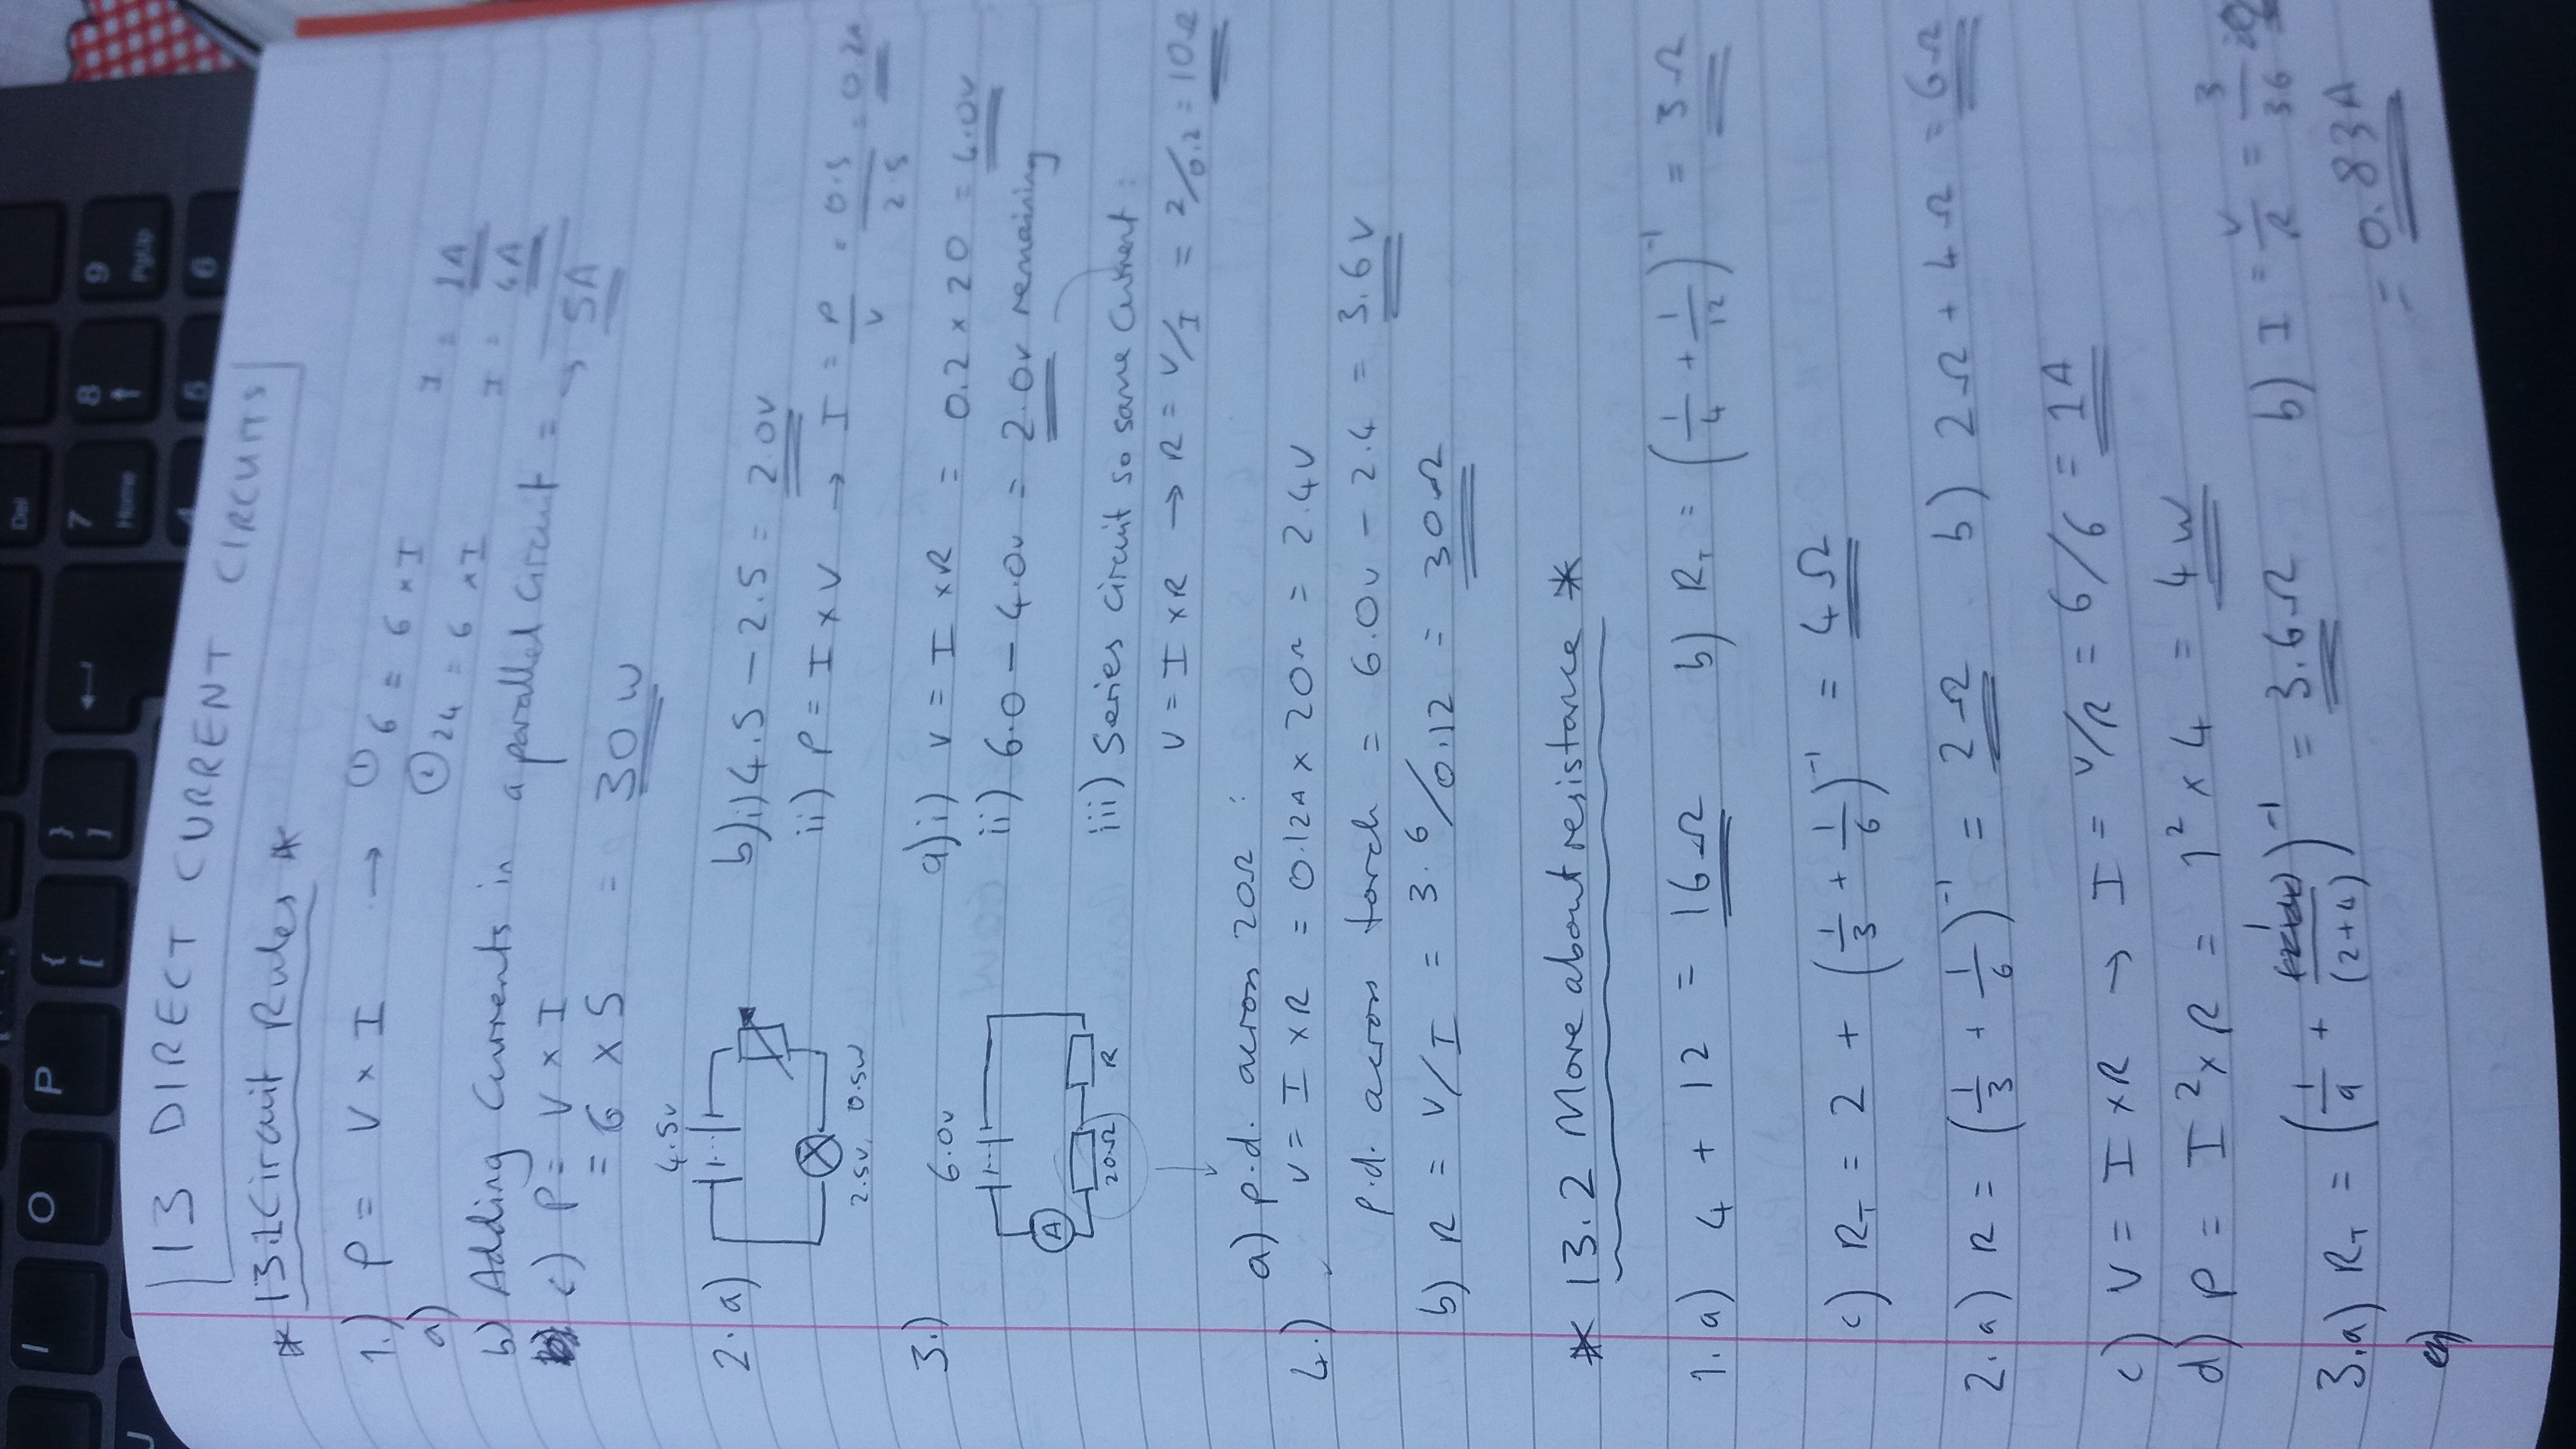 13 DIRECT CURRENT CIRCUITS
* 13.1 Circuit Rules *
1.) P = V x I → ① 6 = 6 x I I = 1A
a) ② 24 = 6 x I I = 4A
b) Adding currents in a parallel circuit = → 5A
c) P = V x I
= 6 x 5 = 30 W
2. a) 4.5v
2.5v, 0.5w
b) i) 4.5 - 2.5 = 2.0v
ii) P = I x V → I = P/V = 0.5/2.5 = 0.2A
3.) 6.0v
A
20Ω R
a) i) V = I x R = 0.2 x 20 = 4.0v
ii) 6.0 - 4.0v = 2.0v remaining
iii) Series circuit so same current:
V = I x R → R = V/I = 2/0.2 = 10Ω
4.) a) p.d. across 20Ω:
V = I x R = 0.12A x 20Ω = 2.4V
p.d. across torch = 6.0v - 2.4 = 3.6V
b) R = V/I = 3.6/0.12 = 30Ω
* 13.2 More about resistance *
1. a) 4 + 12 = 16Ω b) R_T = (1/4 + 1/12)⁻¹ = 3Ω
c) R_T = 2 + (1/3 + 1/6)⁻¹ = 4Ω
2. a) R = (1/3 + 1/6)⁻¹ = 2Ω b) 2Ω + 4Ω = 6Ω
c) V = I x R → I = V/R = 6/6 = 1A
d) P = I² x R = 1² x 4 = 4W
3. a) R_T = (1/9 + 1/(2+4))⁻¹ = 3.6Ω b) I = V/R = 3/3.6
= 0.83A
Del
7 Home
8 ↑
9 PgUp
4
5
6
{ [
} ]
I
O
P
U